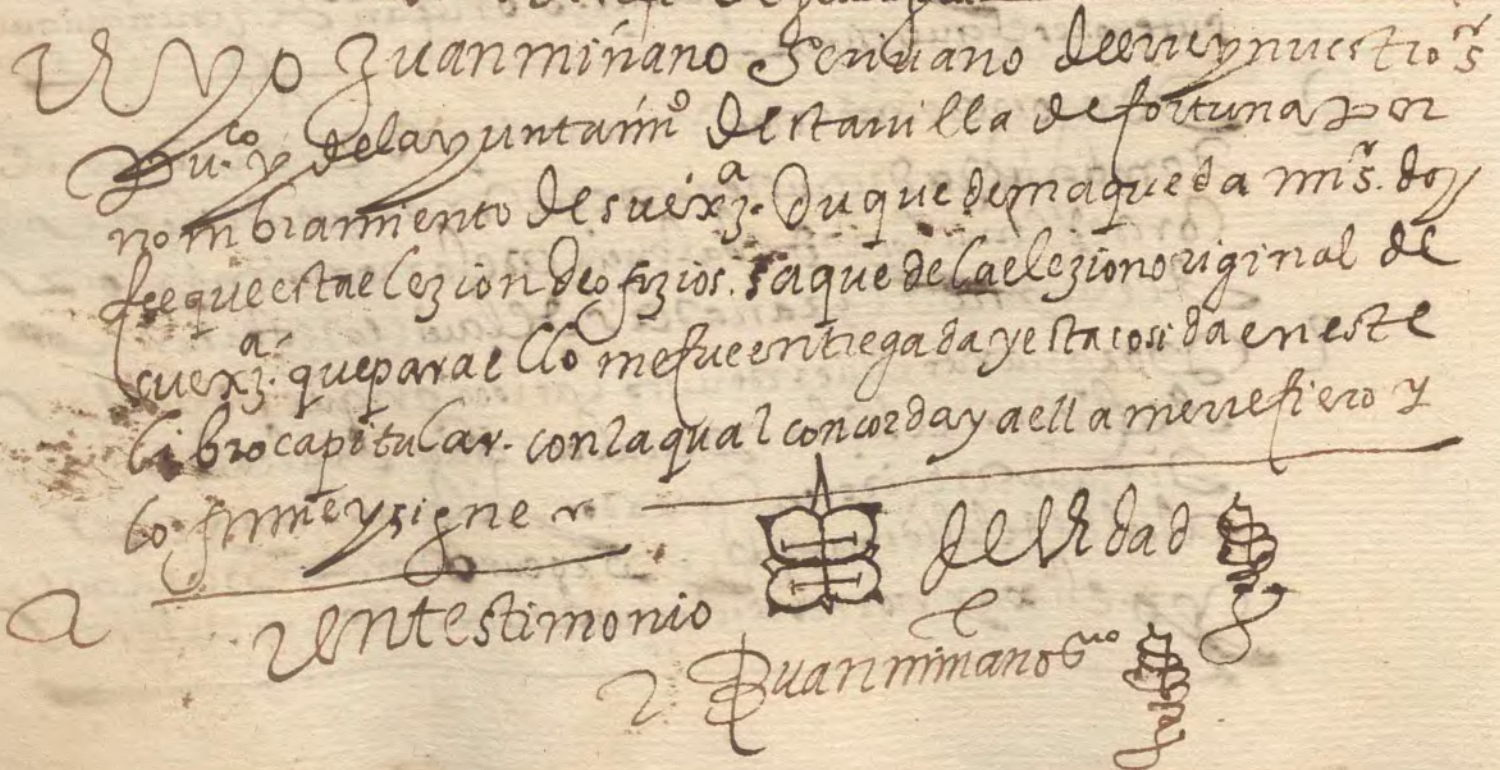 E yo Juan miñano Scrivano del rrey nuestro sr
pu.co y del ayuntamio desta villa de fortuna por
nombramiento de su exza. Duque de maqueda mi sr. doy
fee que esta elezion de ofizios. saque de la elezion original de
su exza. que para ello me fue entregada y esta cosida en este
libro capitular. con la qual concorda y a ella me rrefiero y
lo firme y signe
en testimonio de verdad
Juan miñano Sno